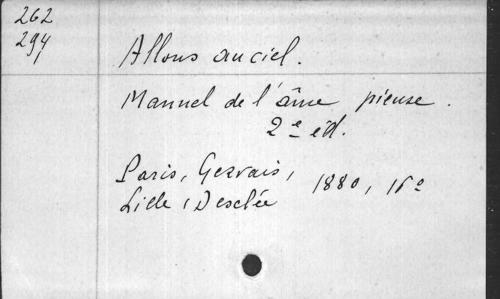 262
294
Allons au ciel.
Manuel de l'âme pieuse.
2e éd.
Paris, Gervais,
Lille, Desclée 1880, 16o